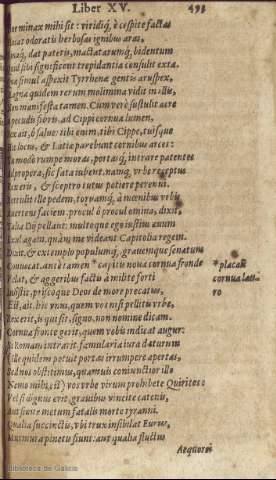 Liber XV. 493
minax mihi sit: viridiq́; è cespite factas
odoratis herbosas ignibus aras,
dat pateris, mactatarumq́; bidentum
sibi significent trepidantia consulit exta.
simul aspexit Tyrrhenæ gentis aruspex,
quidem rerum molimina vidit in illis,
manifesta tamen. Cum verò sustulit acre
pecudis fibris, ad Cippi cornua lumen,
ait, ô salue: tibi enim, tibi Cippe, tuisque
locus, & Latiæ parebunt cornibus arces:
modò rumpe moras, portasq́; intrare patentes
propera, sic fata iubent. namq́; vrbe receptus
eris, & sceptro tutus potiere perenni.
Rettulit ille pedem, toruamq́; à mœnibus vrbis
auertens faciem, procul ô procul omina, dixit,
Talia Dij pellant: multoque ego iustius æuum
Exul agam, quàm me videant Capitolia regem.
Dixit, & extemplo populumq́; grauemque senatum
Conuocat. ante tamen * capiti noua cornua fronde
Velat, & aggeribus factis à milite forti
Insistit, priscoque Deos de more precatus,
Est, ait, hic vnus, quem vos nisi pellitis vrbe,
Rex erit, is qui sit, signo, non nomine dicam.
Cornua fronte gerit, quem vobis indicat augur:
Si Romam intrarit famularia iura daturum
Ille quidem potuit portas irrumpere apertas,
Sed nos obstitimus, quamuis coniunctior illo
Nemo mihi est) vos vrbe virum prohibete Quirites:
Vel si dignus erit, grauibus vincite catenis,
Aut finite metum fatalis morte tyranni.
Qualia succinctis, vbi trux insibilat Eurus,
Murmura pinetis fiunt: aut qualia fluctus
Aequorei
* placali
cornua lau-
ro
Biblioteca de Galicia